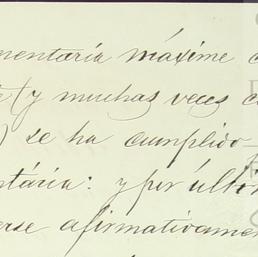 mentaría máxime
(y muchas veces
) se ha cumplido
ntária: y por últi
erse afirmativamen